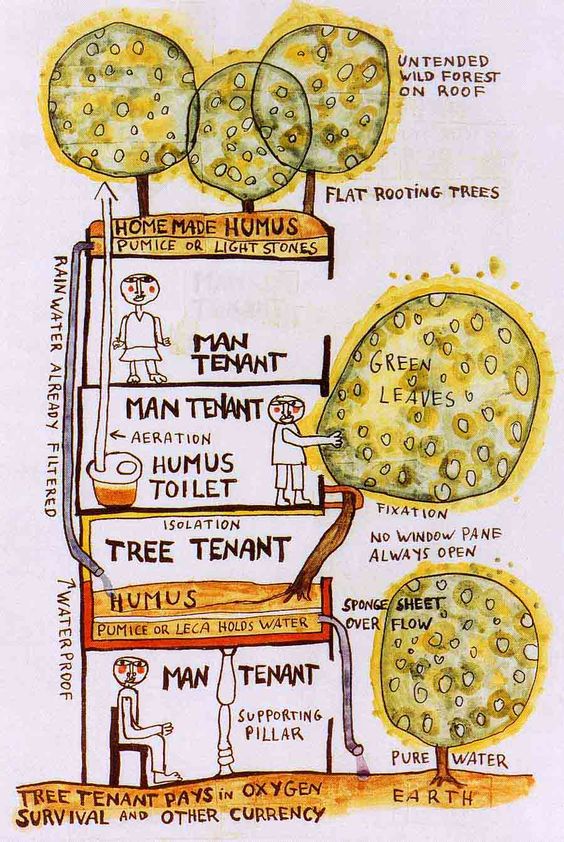 UNTENDED
WILD FOREST
ON ROOF
FLAT ROOTING TREES
HOME MADE HUMUS
PUMICE OR LIGHT STONES
RAINWATER ALREADY FILTERED
MAN
TENANT
GREEN
LEAVES
MAN TENANT
← AERATION
HUMUS
TOILET
FIXATION
NO WINDOW PANE
ALWAYS OPEN
ISOLATION
TREE TENANT
HUMUS
PUMICE OR LECA HOLDS WATER
SPONGE SHEET
OVER FLOW
↑ WATERPROOF
MAN TENANT
SUPPORTING
PILLAR
PURE WATER
EARTH
TREE TENANT PAYS in OXYGEN
SURVIVAL AND OTHER CURRENCY